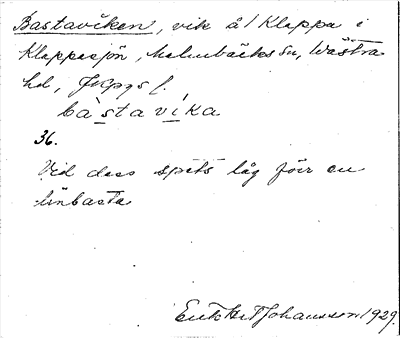 Bastaviken, vik å/ Klappa i
Klappasjön, Malmbäcks sn, Västra
hd, Jkpgs l.
bàstavìka
36.
Vid dess spets låg förr en
linbasta
Erik H Johansson 1929.